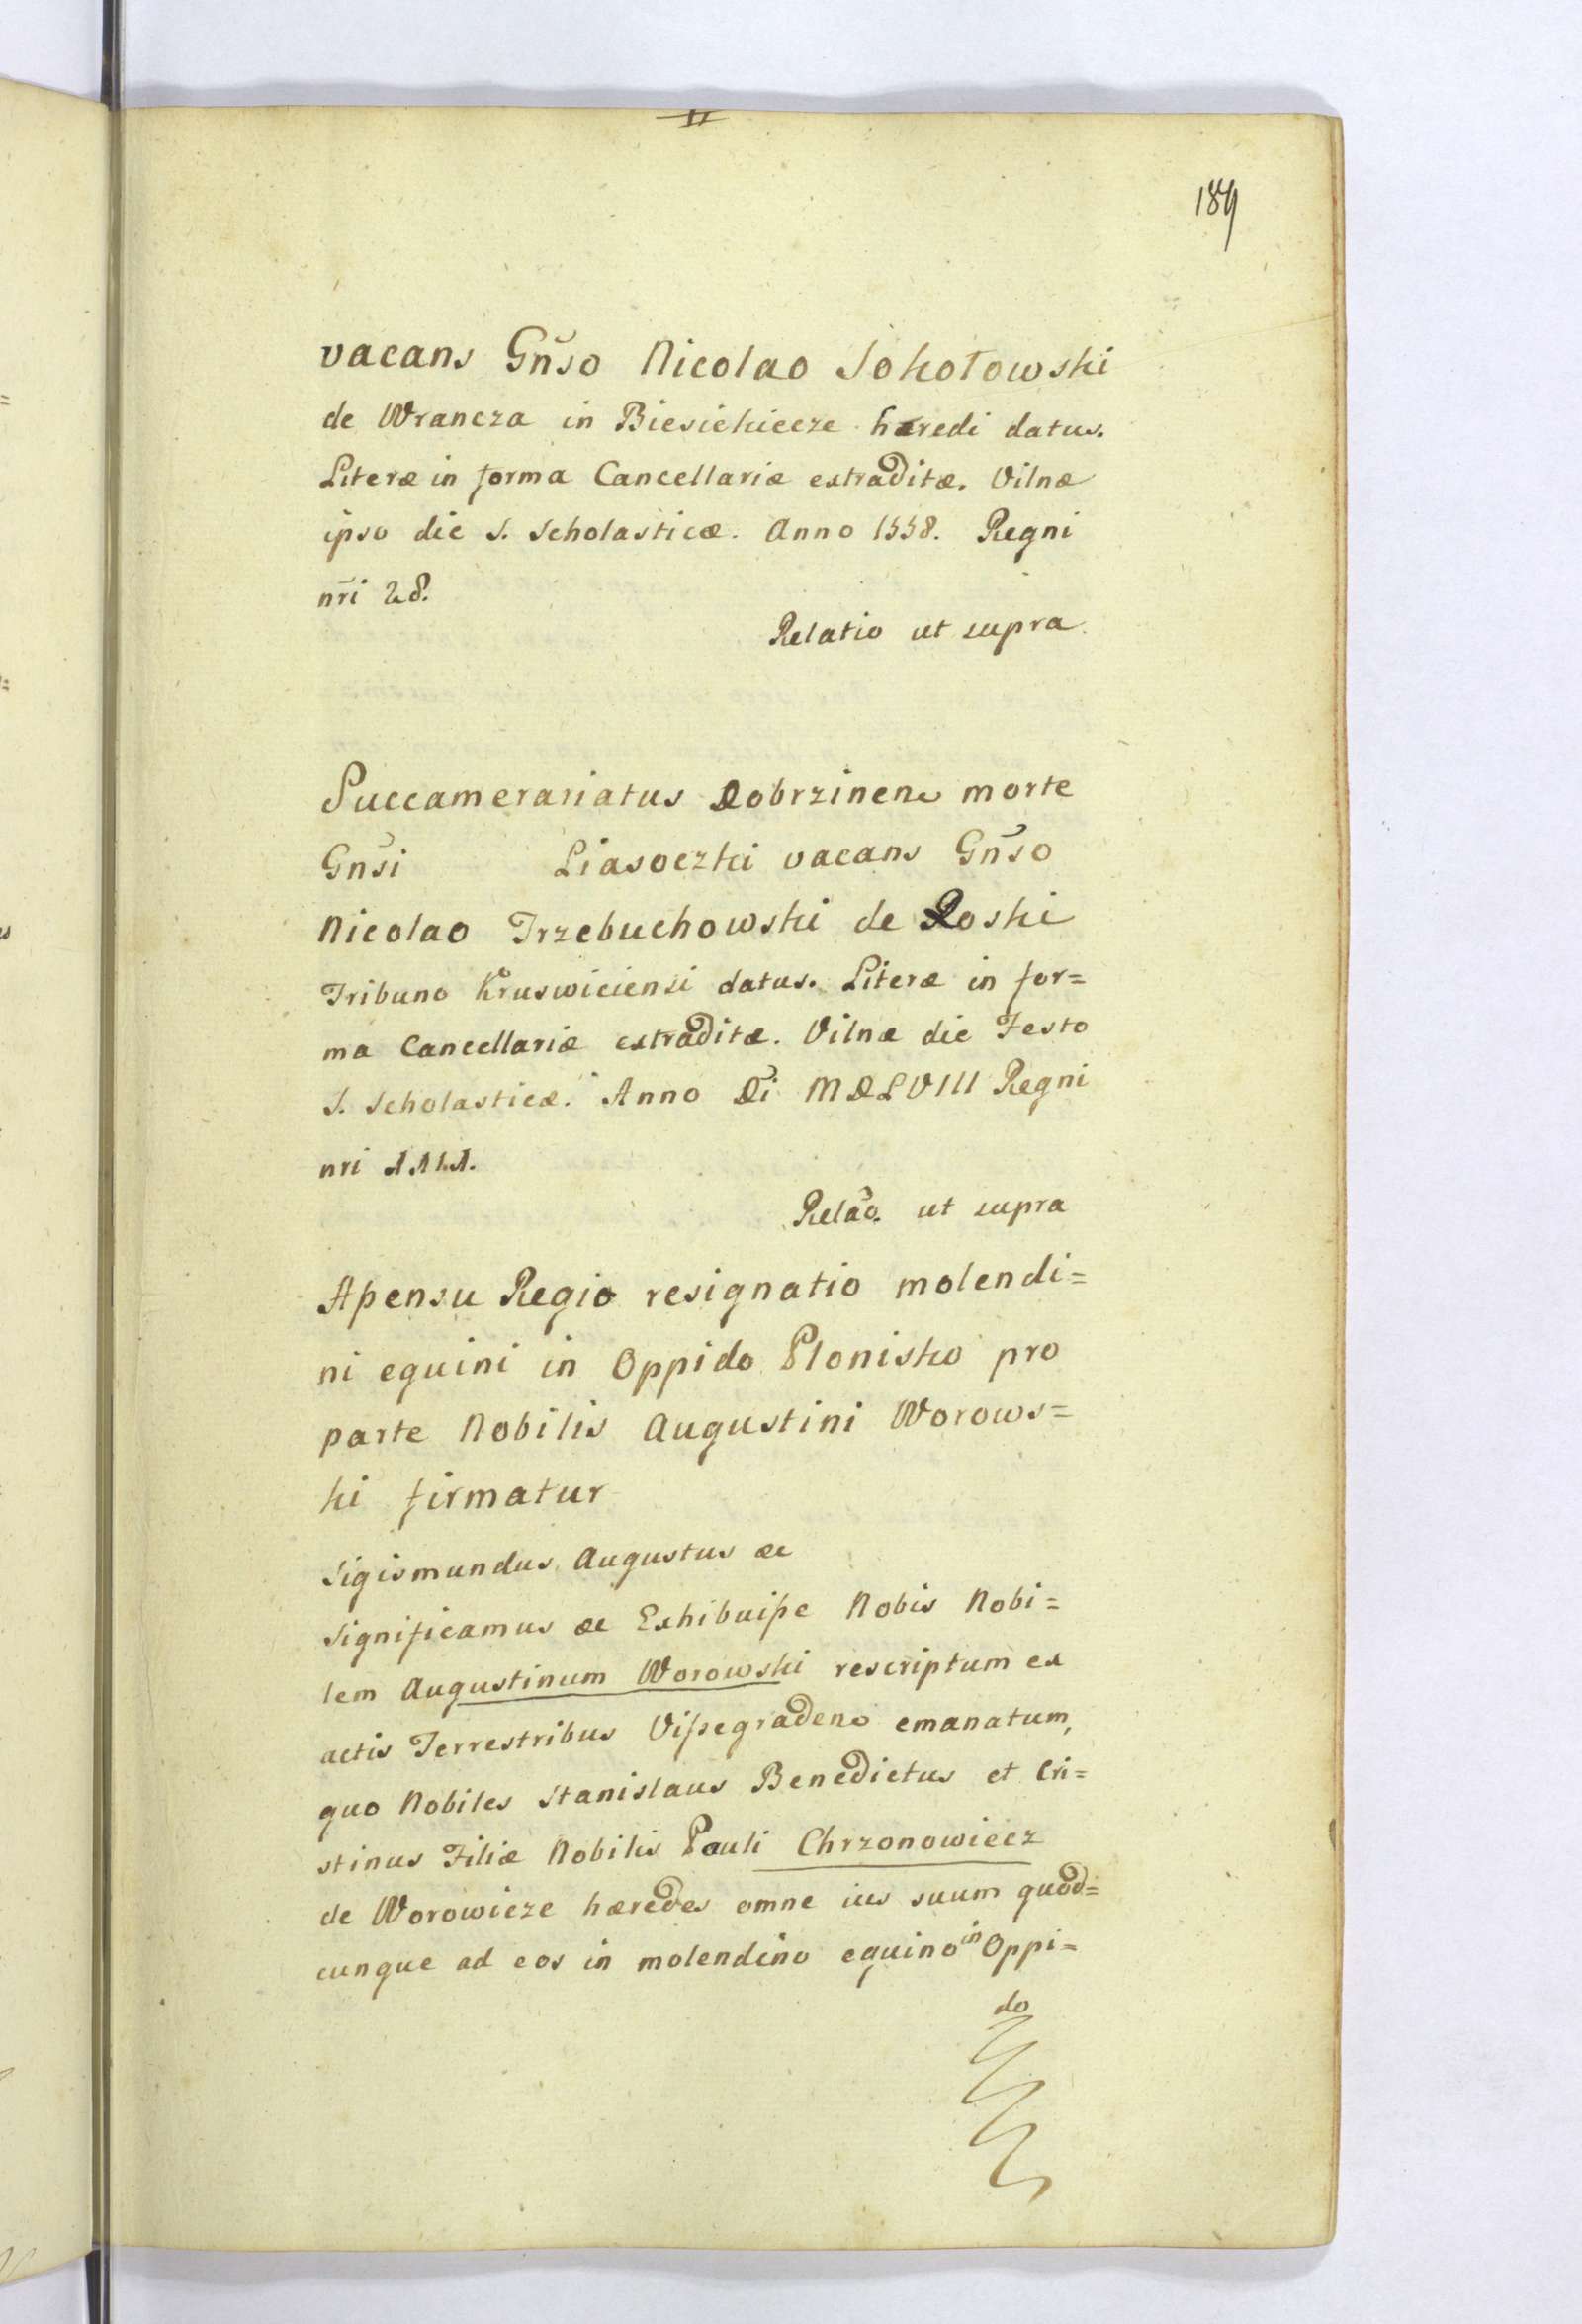 189
vacans Gn̄so Nicolao Sokołowski
de Wrancza in Biesiekierze hæredi datus.
Literæ in forma Cancellariæ extraditæ. Vilnæ
ipso die S. Scholasticæ. Anno 1558. Regni
nr̄i 28.
Relatio ut supra
Succamerariatus Dobrzinens morte
Gn̄si Liasoczki vacans Gn̄so
Nicolao Trzebuchowski de
Tribuno Kruswiciensi datus. Literæ in for=
ma Cancellariæ extraditæ. Vilnæ die Festo
S. Scholasticæ. Anno Di MDLVIII Regni
nri
Relāo. ut supra
Aſsensu Regio resignatio molendi=
ni equini in Oppido Plonisko pro
parte Nobilis Augustini Worows=
ki firmatur
Sigismundus Augustus &c
Significamus &c Exhibuiſse Nobis Nobi=
lem Augustinum Worowski rescriptum ex
actis Terrestribus Viſsegradens emanatum,
quo Nobiles Stanislaus Benedictus et Cri=
stinus Filiæ Nobilis Pauli Chrzonowiecz
de Worowicze hæredes omne ius suum quod=
cunque ad eos in molendino equino in Oppi=
do